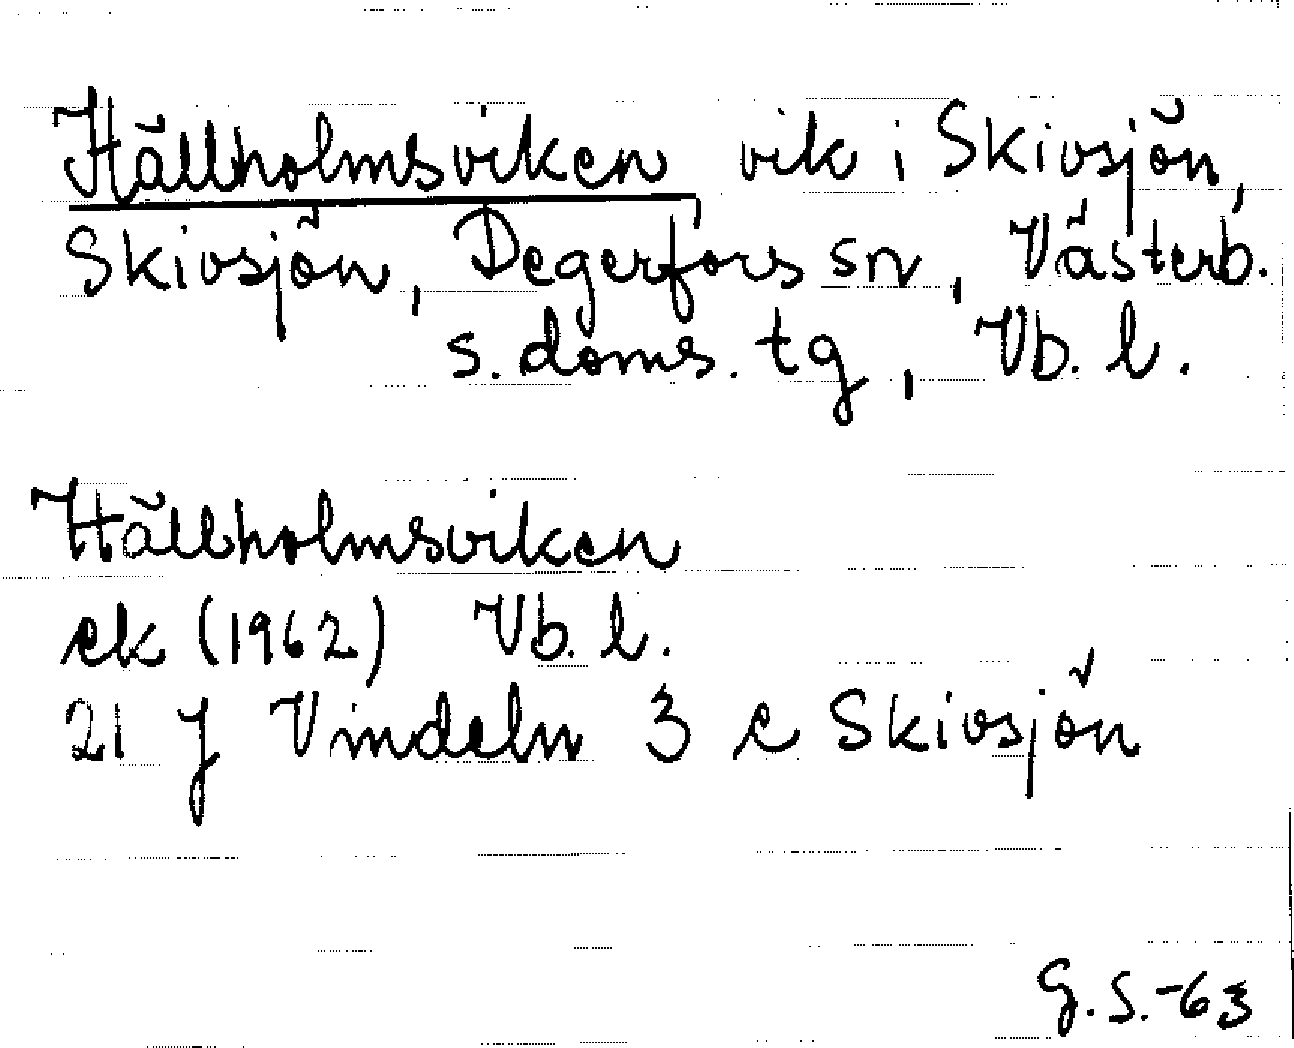 Hällholmsviken vik i Skivsjön,
Skivsjön, Degerfors sn, Västerb.
s. doms. tg, Vb. l.
Hällholmsviken
ek (1962) Vb. l.
21 J Vindeln 3 c Skivsjön
G.S.-63